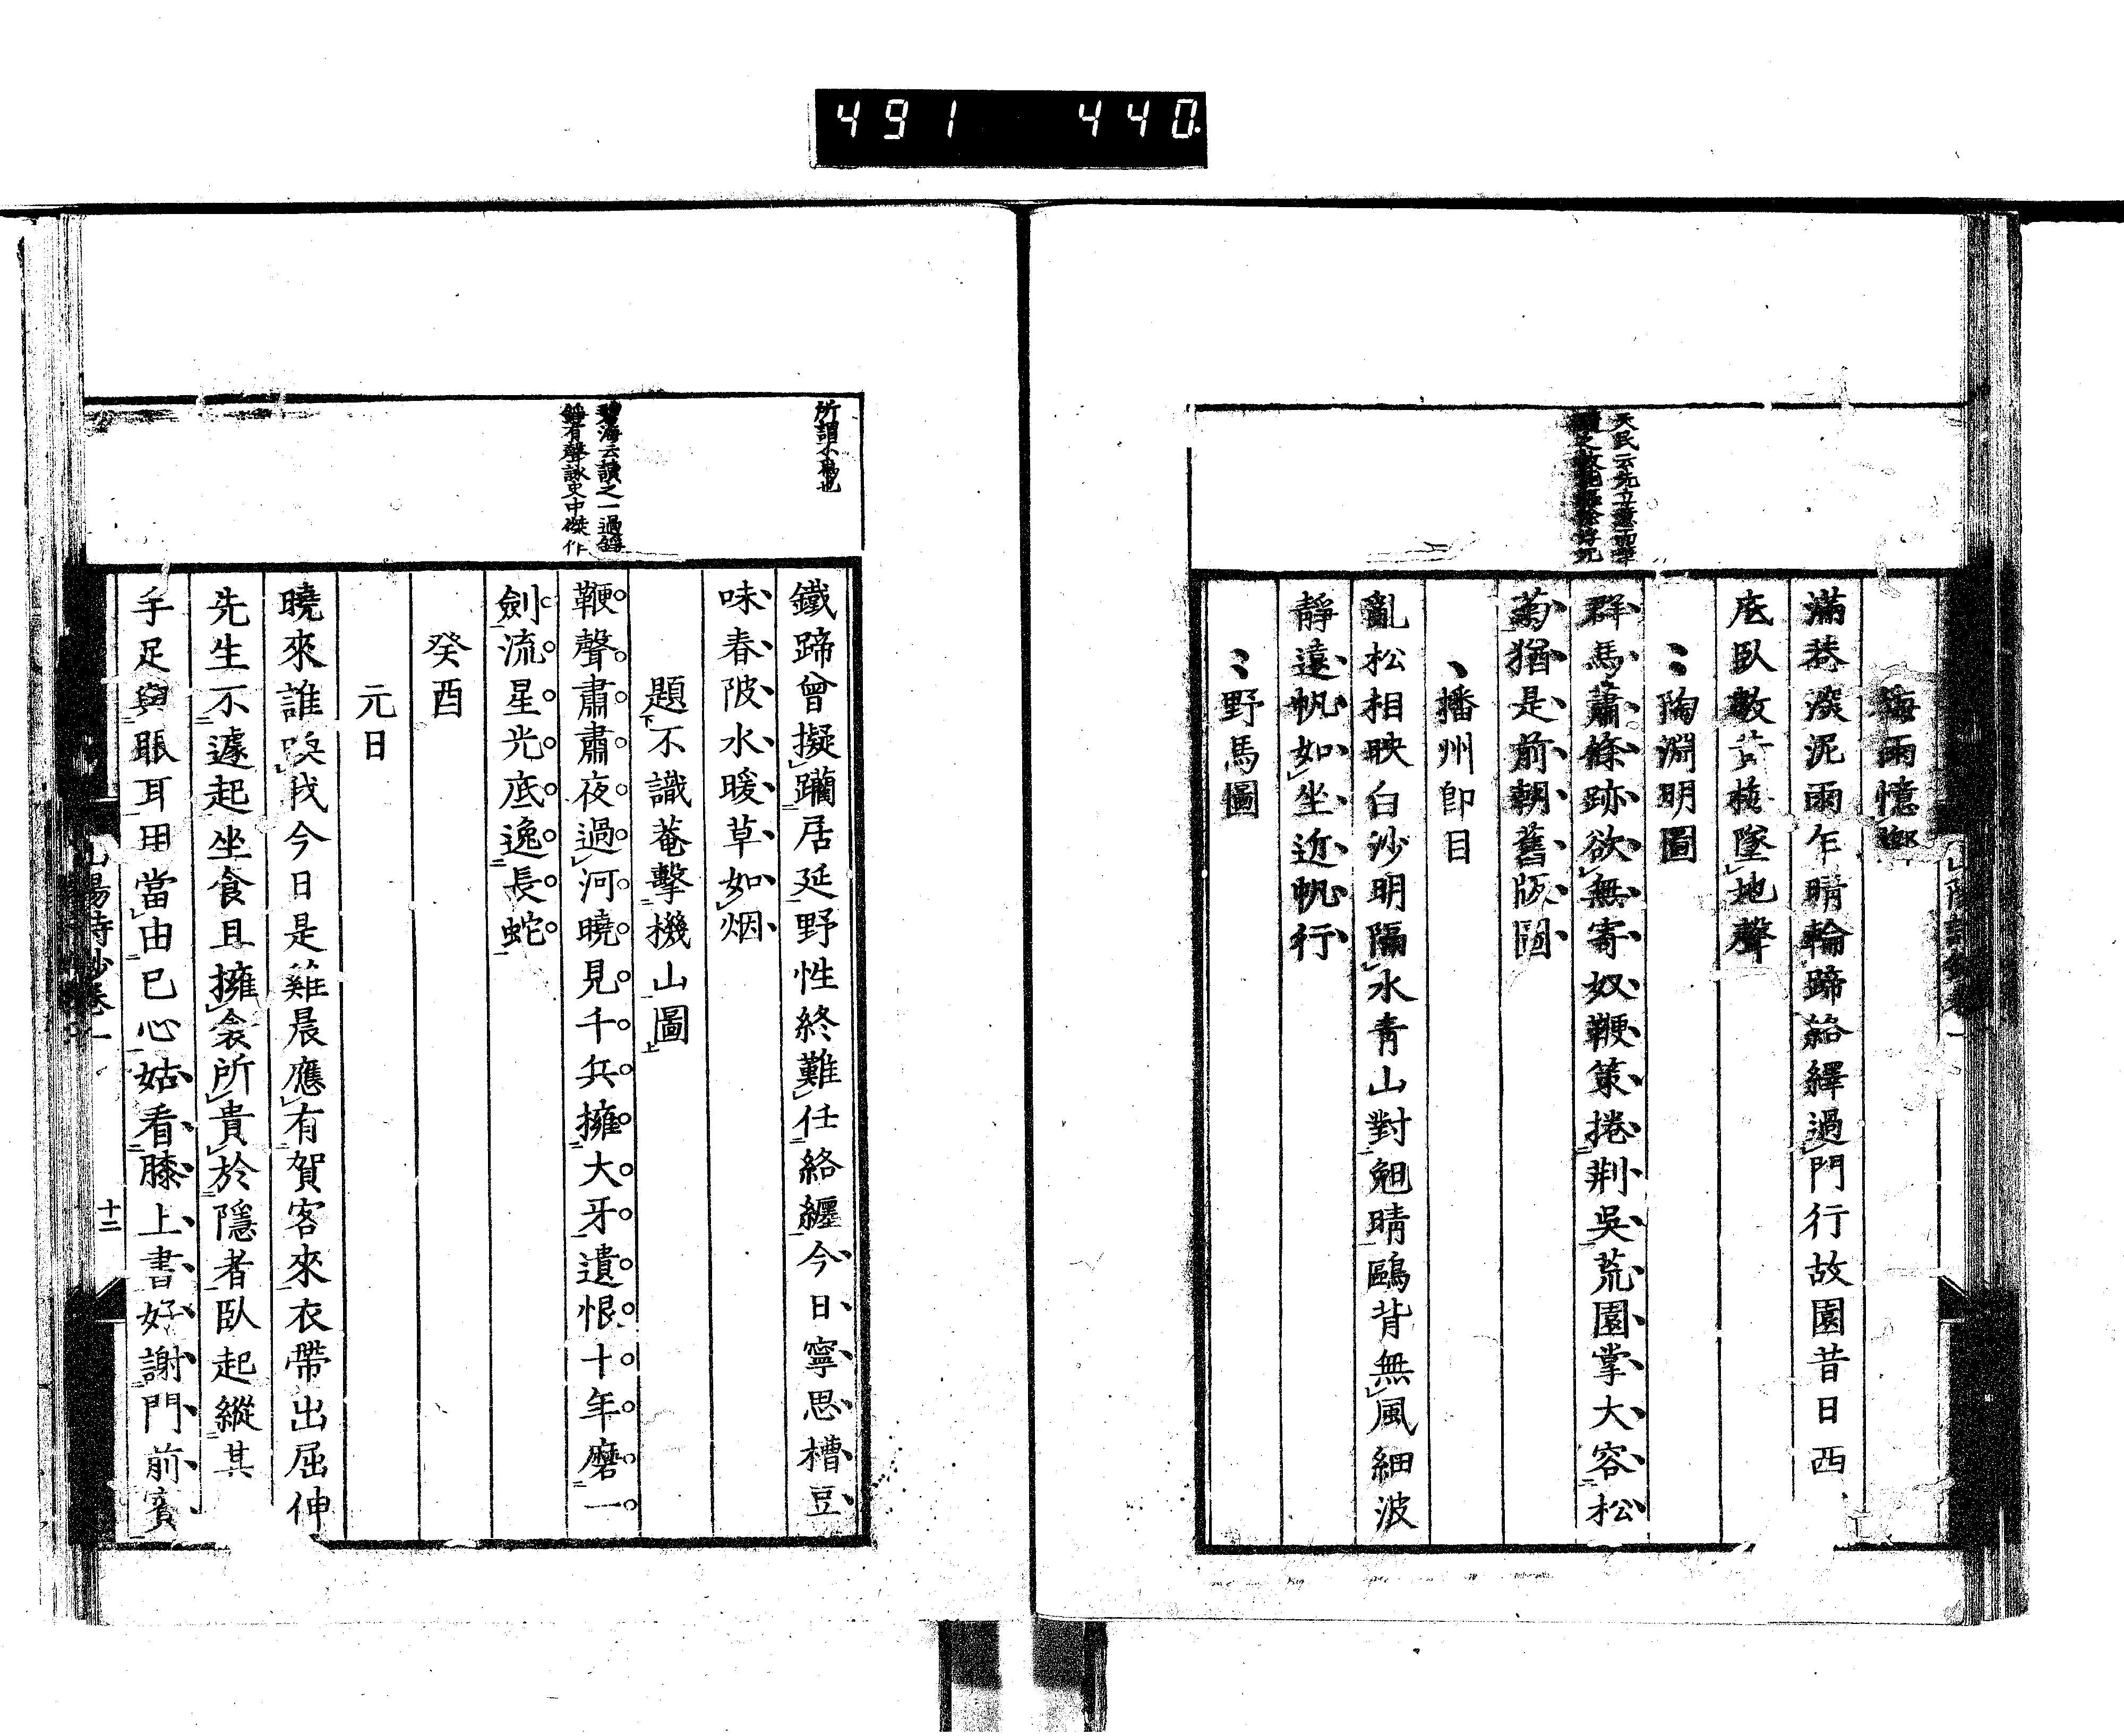 491 440
天民云先立意而筆
梅雨憶鄉
滿巷深泥雨乍晴輪蹄絡繹過門行故園昔日西
底臥數黃梅墜地聲
陶淵明圖
群馬蕭條跡欲無寄奴鞭策捲荆吳荒園掌大容松
菊猶是前朝舊版圖
播州卽目
亂松相映白沙明隔水青山對魨晴鷗背無風細波
靜遠帆如坐近帆行
野馬圖
山陽詩鈔卷一
所謂不爲也
碧海云讀之一過錚
錚有聲詠史中傑作
鐵蹄曾擬躪居延野性終難任絡纏今日寧思槽豆
味春陂水暖草如烟
題不識菴擊機山圖
鞭聲肅肅夜過河曉見千兵擁大牙遺恨十年磨一
劍流星光底逸長蛇
癸酉
元日
曉來誰喚我今日是雞晨應有賀客來衣帶出屈伸
先生不遽起坐食且擁衾所貴於隱者臥起縱其
手足與眼耳用當由已心姑看膝上書好謝門前賓
山陽詩鈔卷一
十二